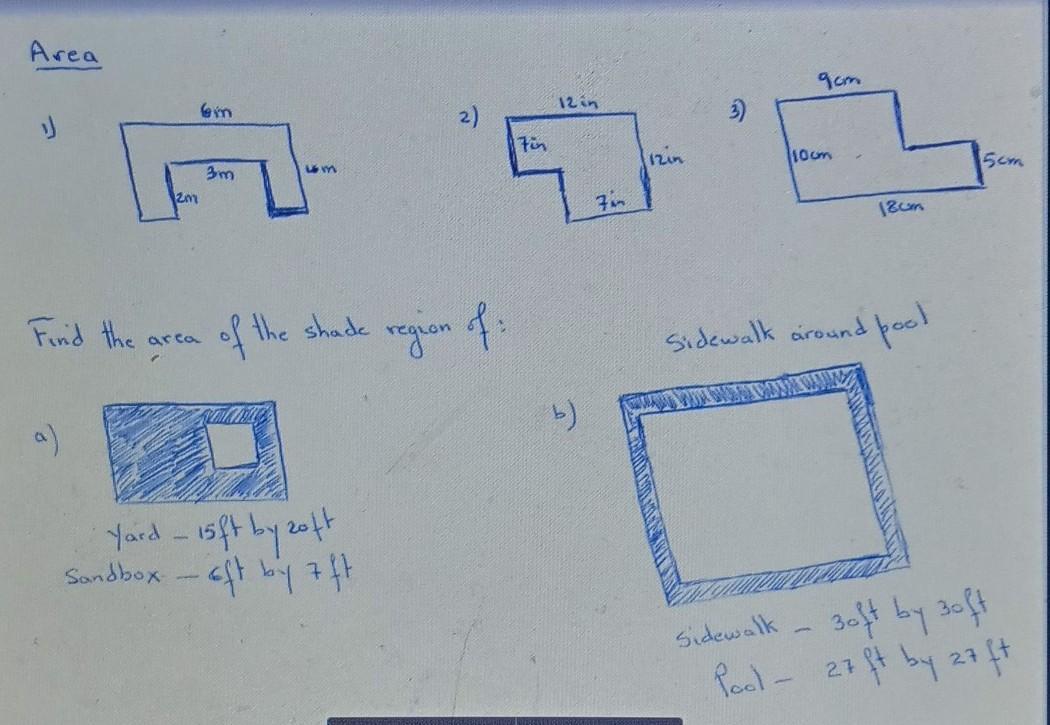 Area
1)
6m
3m
2m
4m
2)
12in
7in
12in
7in
3)
9cm
10cm
5cm
18cm
Find the area of the shade region of:
a)
Yard - 15ft by 20ft
Sandbox - 6ft by 7ft
b)
Sidewalk around pool
Sidewalk - 30ft by 30ft
Pool - 27ft by 27ft